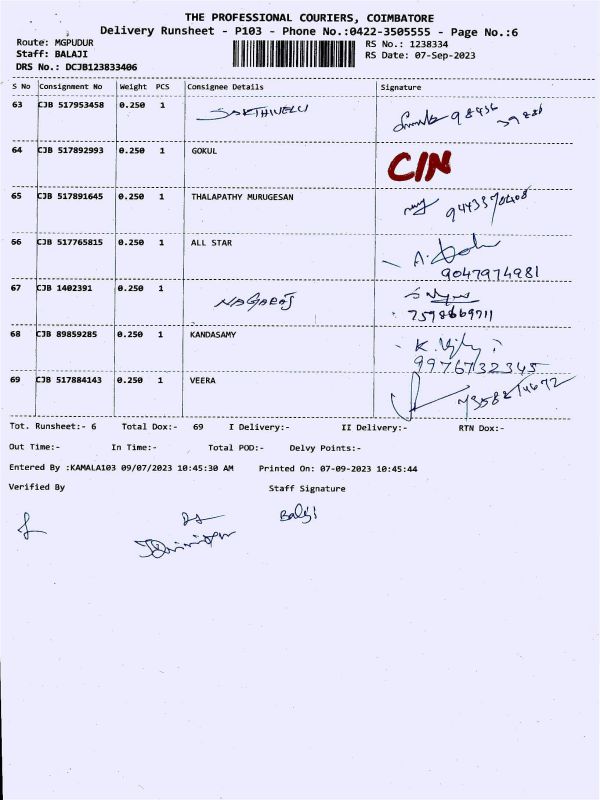 THE PROFESSIONAL COURIERS, COIMBATORE
Delivery Runsheet - P103 - Phone No.:0422-3505555 - Page No.:6
Route: MGPUDUR RS No.: 1238334
Staff: BALAJI RS Date: 07-Sep-2023
DRS No.: DCJB123833406
S No Consignment No Weight PCS Consignee Details Signature
63 CJB 517953458 0.250 1 SAKTHIVELU
64 CJB 517892993 0.250 1 GOKUL C/N
65 CJB 517891645 0.250 1 THALAPATHY MURUGESAN
66 CJB 517765815 0.250 1 ALL STAR A.
9047974981
67 CJB 1402391 0.250 1 NAGARAJ
7598669711
68 CJB 89859285 0.250 1 KANDASAMY K.
9976732345
69 CJB 517884143 0.250 1 VEERA
Tot. Runsheet:- 6 Total Dox:- 69 I Delivery:- II Delivery:- RTN Dox:-
Out Time:- In Time:- Total POD:- Delvy Points:-
Entered By :KAMALA103 09/07/2023 10:45:30 AM Printed On: 07-09-2023 10:45:44
Verified By Staff Signature
Balaji